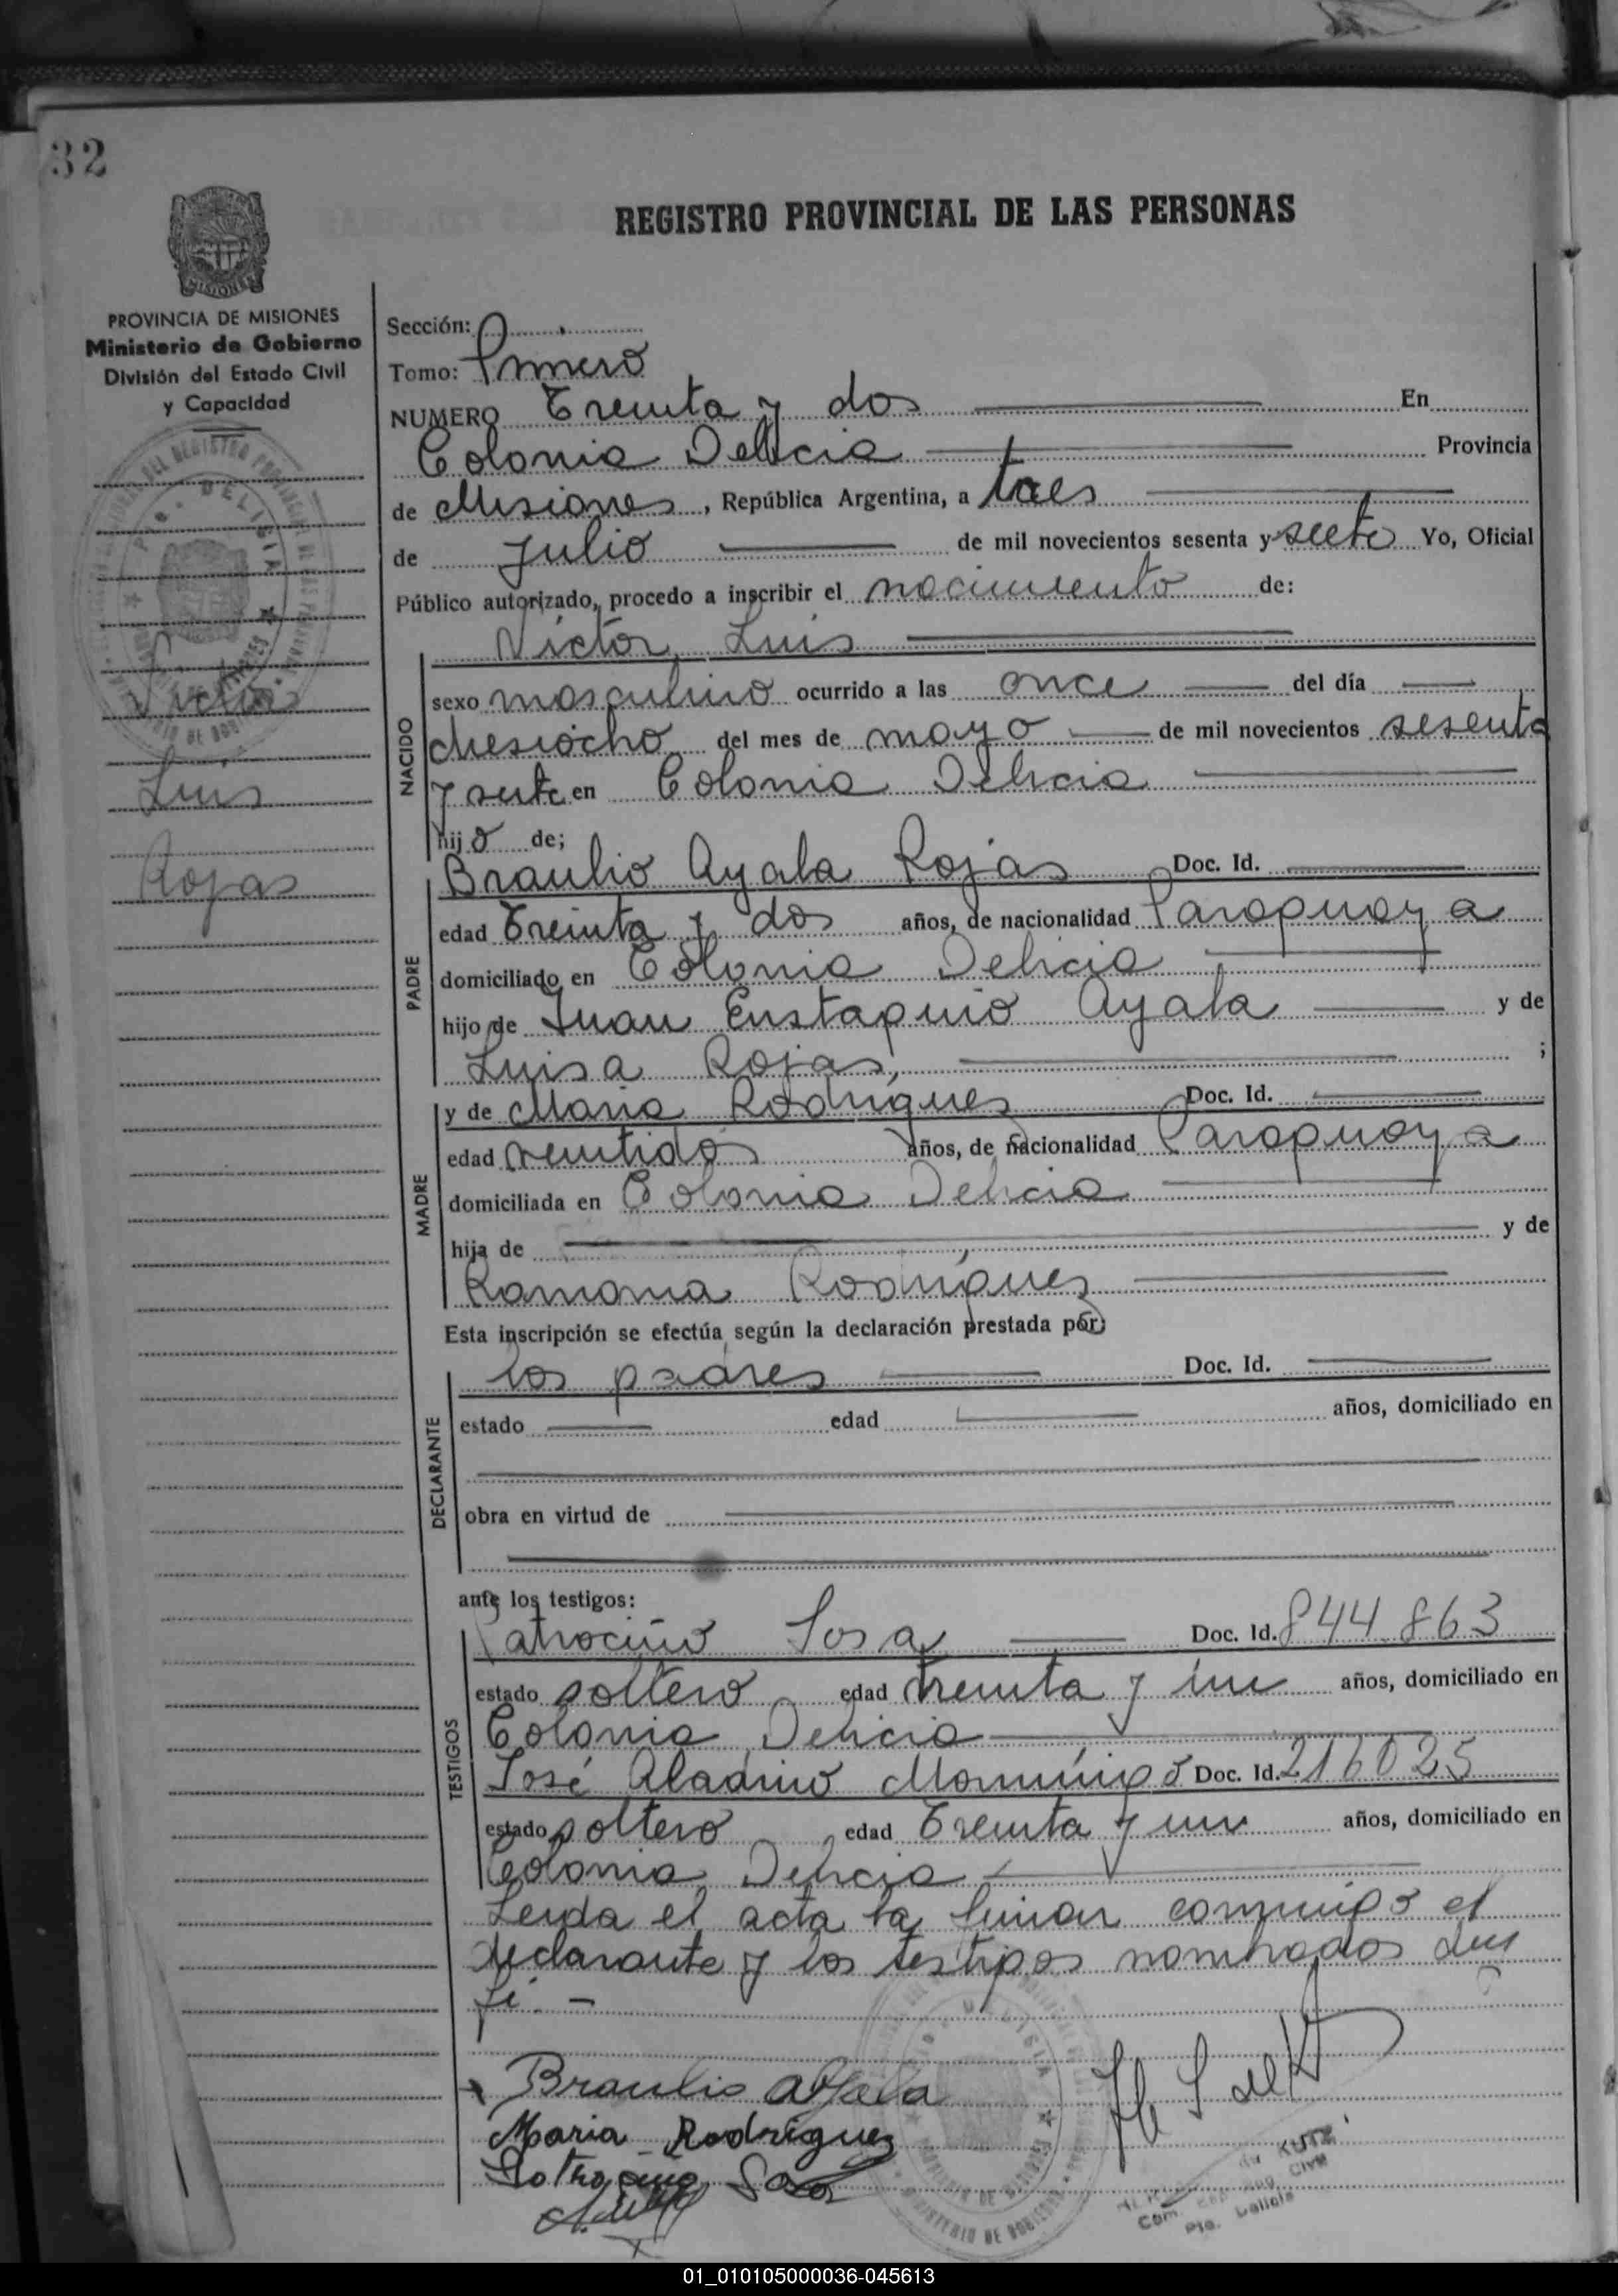 32
REGISTRO PROVINCIAL DE LAS PERSONAS
MISIONES
PROVINCIA DE MISIONES
Ministerio de Gobierno
División del Estado Civil
y Capacidad
Victor
Luis
Rojas
Sección:
Tomo: Primero
NUMERO Treinta y dos En
Colonia Delicia Provincia
de Misiones, República Argentina, a tres
de Julio de mil novecientos sesenta y siete Yo, Oficial
Público autorizado, procedo a inscribir el nacimiento de:
Victor Luis
NACIDO
sexo masculino ocurrido a las once del día
diesiocho del mes de mayo de mil novecientos sesenta
y siete en Colonia Delicia
hijo de;
PADRE
Braulio Ayala Rojas Doc. Id.
edad Treinta y dos años, de nacionalidad Paraguaya
domiciliado en Colonia Delicia
hijo de Juan Eustaquio Ayala y de
Luisa Rojas, ;
MADRE
y de Maria Rodrígues Doc. Id.
edad veintidos años, de nacionalidad Paraguaya
domiciliada en Colonia Delicia
hija de y de
Ramona Rodrígues
Esta inscripción se efectúa según la declaración prestada por
DECLARANTE
los padres Doc. Id.
estado edad años, domiciliado en
obra en virtud de
ante los testigos:
TESTIGOS
Patrocinio Sosa Doc. Id. 844.863
estado soltero edad treinta y un años, domiciliado en
Colonia Delicia
José Aladino Mormíngo Doc. Id. 216025
estado soltero edad Treinta y un años, domiciliado en
Colonia Delicia
Leida el acta la firman conmigo el
declarante y los testigos nombrados doy
fé. -
Braulio Ayala
Maria Rodriguez
Sosa
KUTZ
Civil
Com.
Pto. Delicia
01_010105000036-045613